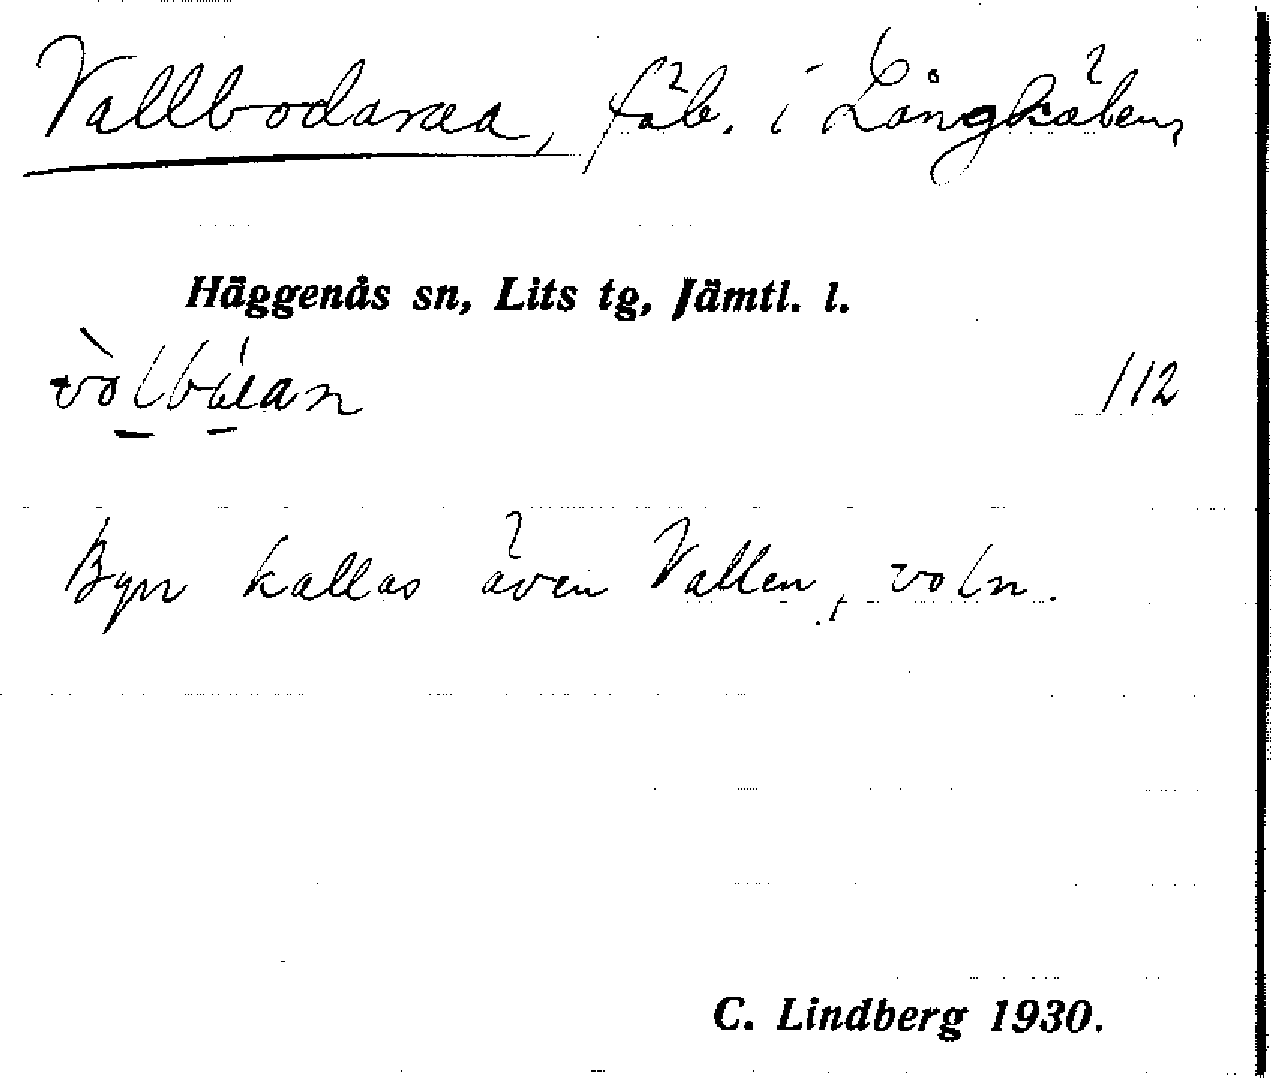 Vallbodarna, fäb. i Långkälen,
Häggenås sn, Lits tg, Jämtl. l.
/12
Byn kallas även Vallen, voln.
C. Lindberg 1930.